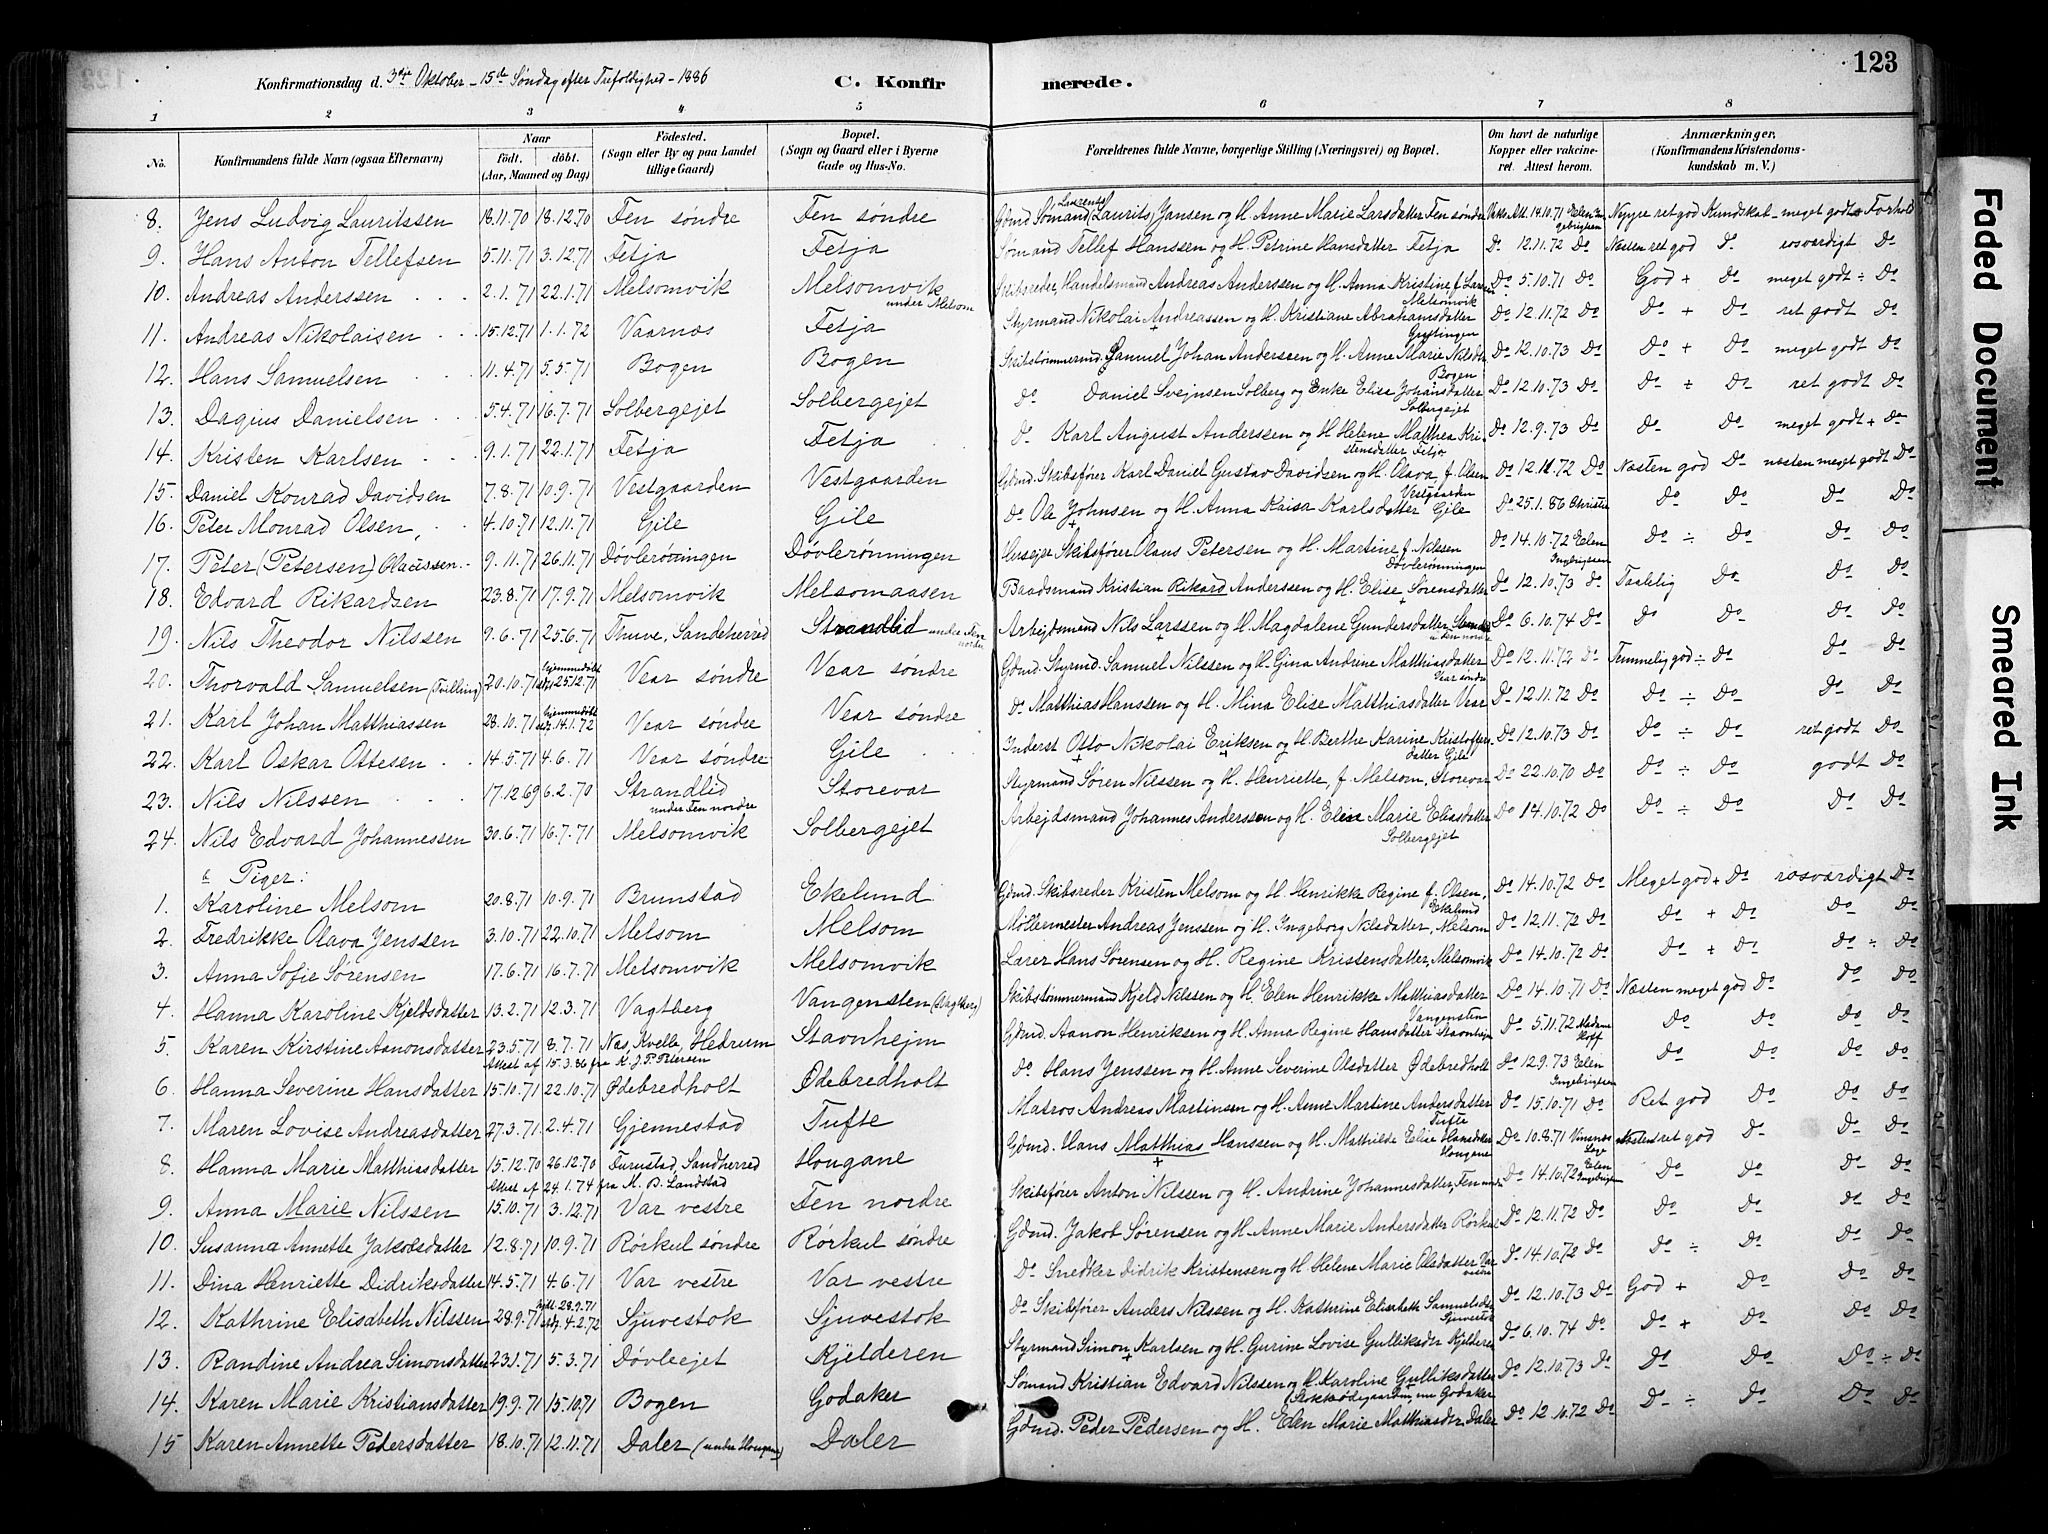 Konfirmationsdag d. 3dje Oktober - 15de Søndag efter Trefoldighed - 1886
C. Konfirmerede.
123
1 2 3 4 5 6 7 8
No. Konfirmandens fulde Navn (ogsaa Efternavn) Naar født. døbt. (Aar, Maaned og Dag) Födested. (Sogn eller By og paa Landet tillige Gaard) Bopæl. (Sogn og Gaard eller i Byerne Gade og Hus-No. Forældrenes fulde Navne, borgerlige Stilling (Næringsvei) og Bopæl. Om havt de naturlige Kopper eller vakcineret. Attest herom. Anmærkninger. (Konfirmandens Kristendomskundskab m. V.)
8. Jens Ludvig Lauritssen 18.11.70 18.12.70 Fen søndre Fen søndre Gdmd Sømand (Laurits) Jansen og H. Anne Marie Larsdatter Fen søndre Vakc. Att. 14.10.71 Elen Ingebrigtsen Neppe ret god Kundskab - meget godt Forhold
9. Hans Anton Tellefsen 5.11.71 3.12.71 Fetja Fetja Sømand Tellef Hanssen og H. Petrine Hansdatter Fetja Do 12.11.72 Do Næsten ret god Do rosværdigt Do
10. Andreas Anderssen 2.1.71 22.1.71 Melsomvik Melsomvik under Melsom Skibsreder, Handelsmand Andreas Anderssen og H. Anna Kristine f. Larsen Melsomvik Do 5.10.71 Do God + Do meget godt ÷ Do
11. Andreas Nikolaisen 15.12.71 1.1.72 Vaarnæs Fetja Styrmand Nikolai Andreassen og H. Kristiane Abrahamsdatter Do 12.11.72 Do Do + Do ret godt Do
12. Hans Samuelsen 11.4.71 5.5.71 Bogen Bogen Skibstømmermd. Samuel Johan Anderssen og H. Anne Marie Nilsdtr Bogen Do 12.10.73 Do Do + Do meget godt Do
13. Dagius Danielsen 5.4.71 16.7.71 Solbergejet Solbergejet Do Daniel Svejnsen Solberg og Enke Elise Johansdatter Solbergejet Do 12.10.73 Do Do ÷ Do ret godt Do
14. Kristen Karlsen 9.1.71 22.1.71 Fetja Fetja Do Karl August Anderssen og H Helene Mathea Kristensdatter Fetja Do 12.9.73 Do Do Do meget godt + Do
15. Daniel Konrad Davidsen 7.8.71 10.9.71 Vestgaarden Vestgaarden Gdmd. Skibsfører Karl Daniel Gustav Davidsen og H. Olava f. Olsen Vestgaarden Do 12.11.72 Do Næsten god Do næsten meget godt Do
16. Peter Monrad Olsen, 4.10.71 12.11.71 Gile Gile Do Ole Johnsen og H. Anna Kaisa Karlsdatter Gile Do 25.1.86 Do Do Do Do
17. Peter (Petersen) Olaussen 9.11.71 26.11.71 Døvlerønningen Døvlerønningen Husejer Skibsfører Olaus Petersen og H. Martine f. Nilssen Døvlerønningen Do 14.10.72 Elen Ingebrigtsen Do ÷ Do Do Do
18. Edvard Rikardsen 23.8.71 17.9.71 Melsomvik Melsomaasen Baadsmand Kristian Rikard Anderssen og H. Elise Sørensdatter Do 12.10.73 Do Taalelig Do Do Do
19. Nils Theodor Nilssen 9.6.71 25.6.71 Thuve, Sandeherred Strandlid under Fen nordre Arbejdsmand Nils Larssen og H. Magdalene Gundersdatter u. Fen nordre Do 6.10.74 Do Do Do Do Do
20. Thorvald Samuelsen (Tvilling) 20.10.71 hjemmedøbt 25.12.71 Vear søndre Vear søndre Gdmd. Styrmd. Samuel Nilssen og H. Gina Andrine Matthiasdatter Vear søndre Do 12.11.72 Do Temmelig god ÷ Do Do Do
21. Karl Johan Matthiassen 28.10.71 hjemmedøbt 14.1.72 Vear søndre Vear søndre Do Matthias Hanssen og H. Mina Elise Matthiasdatter Vear Do 12.11.72 Do Do ÷ Do Do Do
22. Karl Oskar Ottesen 14.5.71 4.6.71 Vear søndre Gile Inderst Otto Nikolai Eriksen og H. Berthe Karine Kristoffersdatter Gile Do 12.10.73 Do Do ÷ Do ret godt Do
23. Nils Nilssen 17.12.69 6.2.70 Strandlid under Fen nordre Storevar Styrmand Søren Nilssen og H. Henriette, f. Melsom, Storevar Do 22.10.70 Do Do ÷ Do godt Do
24. Nils Edvard Johannessen 30.6.71 16.7.71 Melsomvik Solbergejet Arbejdsmand Johannes Anderssen og H. Eline Marie Eliasdatter Solbergejet Do 14.10.72 Do Do ÷ Do Do Do
Piger:
1. Karoline Melsom 20.8.71 10.9.71 Brunstad Ekelund Gdmd. Skibsreder Kristen Melsom og H. Henrikke Regine f. Olsen, Ekelund Do 14.10.72 Do Meget god + Do rosværdigt Do
2. Fredrikke Olava Jenssen 3.10.71 22.10.71 Melsom Melsom Møllermester Andreas Jenssen og H. Ingeborg Nilsdatter, Melsom Do 12.11.72 Do Do + Do Do Do
3. Anna Sofie Sørensen 17.6.71 16.7.71 Melsomvik Melsomvik Lærer Hans Sørensen og H. Regine Kristensdatter, Melsomvik Do 14.10.72 Do Do + Do Do ÷ Do
4. Hanna Karoline Kjeldsdatter 13.2.71 12.3.71 Vagtberg Vangensten (Vagtberg) Skibstømmermand Kjeld Nilssen og H. Elen Henrikke Matthiasdatter Vangensten Do 14.10.71 Do Næsten meget god Do Do Do
5. Karen Kirstine Aanonsdatter 23.5.71 8.7.71 Næs, Kvelle, Hedrum Stavnhejm Gdmd. Aanon Henriksen og H. Anna Regine Hansdatter Stavnhejm Do 5.11.72 Madame Do Do Do Do
Attest af 15.3.86 fra K. J. P. Petersen
6. Hanna Severine Hansdatter 15.10.71 22.10.71 Ødebredholt Ødebredholt Do Hans Jenssen og H. Anne Severine Olsdatter Ødebredholt Do 12.9.73 Elen Ingebrigtsen Do Do Do Do
7. Maren Lovise Andreasdatter 27.3.71 2.4.71 Gjennestad Tufte Matros Andreas Martinsen og H. Anne Martine Andersdatter Tufte Do 15.10.71 Do Ret god Do Do Do
8. Hanna Marie Matthiasdatter 15.12.70 26.12.70 Furustad, Sandherred Hougane Gdmd. Hans Matthias Hanssen og H. Mathilde Elise Hansdatter Hougane Do 10.8.71 Næsten ret god Do Do Do
Attest af 24.1.74 fra M. B. Landstad
9. Anna Marie Nilssen 15.10.71 3.12.71 Var vestre Fen nordre Skibsfører Anton Nilssen og H. Andrine Johannesdatter, Fen nordre Do 14.10.72 Elen Ingebrigtsen Do Do Do Do
10. Susanna Annette Jakobsdatter 12.8.71 10.9.71 Rørkul søndre Rørkul søndre Gdmd. Jakob Sørensen og H. Anne Marie Andersdatter Rørkul Do 12.11.72 Do Do Do Do Do
11. Dina Henriette Didriksdatter 14.5.71 4.6.71 Var vestre Var vestre Do Snedker Didrik Kristensen og H Helene Marie Olsdatter Var vestre Do 14.10.72 Do Do ÷ Do Do Do
12. Kathrine Elisabeth Nilssen 28.9.71 hjdt. 28.9.71 4.2.72 Sjuvestok Sjuvestok Do Skibsfører Anders Nilssen og H. Kathrine Elisabeth Samuelsdtr Sjuvestok Do 12.10.73 Do God + Do Do Do
13. Randine Andrea Simonsdatter 23.1.71 5.3.71 Døvleejet Kjelderen Styrmand Simon Karlsen og H. Gurine Lovise Gulliksdtr Kjelderen Do 6.10.74 Do Do + Do Do Do
14. Karen Marie Kristiansdatter 19.9.71 15.10.71 Bogen Godaker Sømand Kristian Edvard Nilssen og H. Karoline Gulliksdatter nu Godaker Do 12.10.73 Do Do Do Do ÷ Do
15 Karen Annette Pedersdatter 18.10.71 12.11.71 Daler (under Hougane) Daler Gdmd. Peder Pedersen og H. Elen Marie Matthiasdtr Daler Do 12.10.72 Do Do ÷ Do Do Do
Faded Document
Smeared Ink